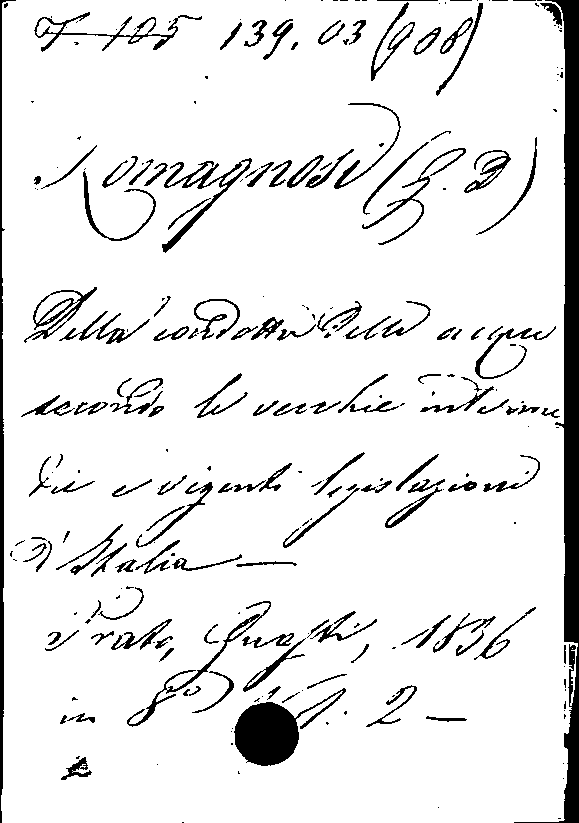 F. 105 139.03 (908)
Romagnosi (G. D)
Della condotta delle acque
secondo le vecchie interme
die e vigenti legislazioni
d'Italia —
Prato, Guasti, 1836
in 8º Vol. 2 —